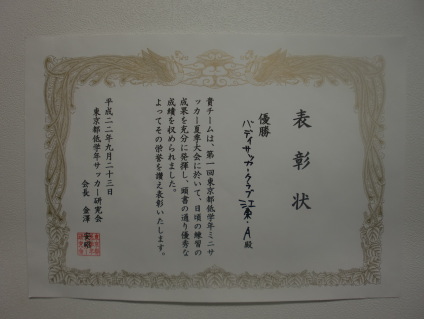 表彰状
優勝
バディサッカークラブ江東・A殿
貴チームは、第一回東京都低学年ミニサ
ッカー夏季大会に於いて、日頃の練習の
成果を充分に発揮し、頭書の通り優秀な
成績を収められました。
よってその栄誉を讃え表彰いたします。
平成二二年九月二十三日
東京都低学年サッカー研究会
会長 金澤